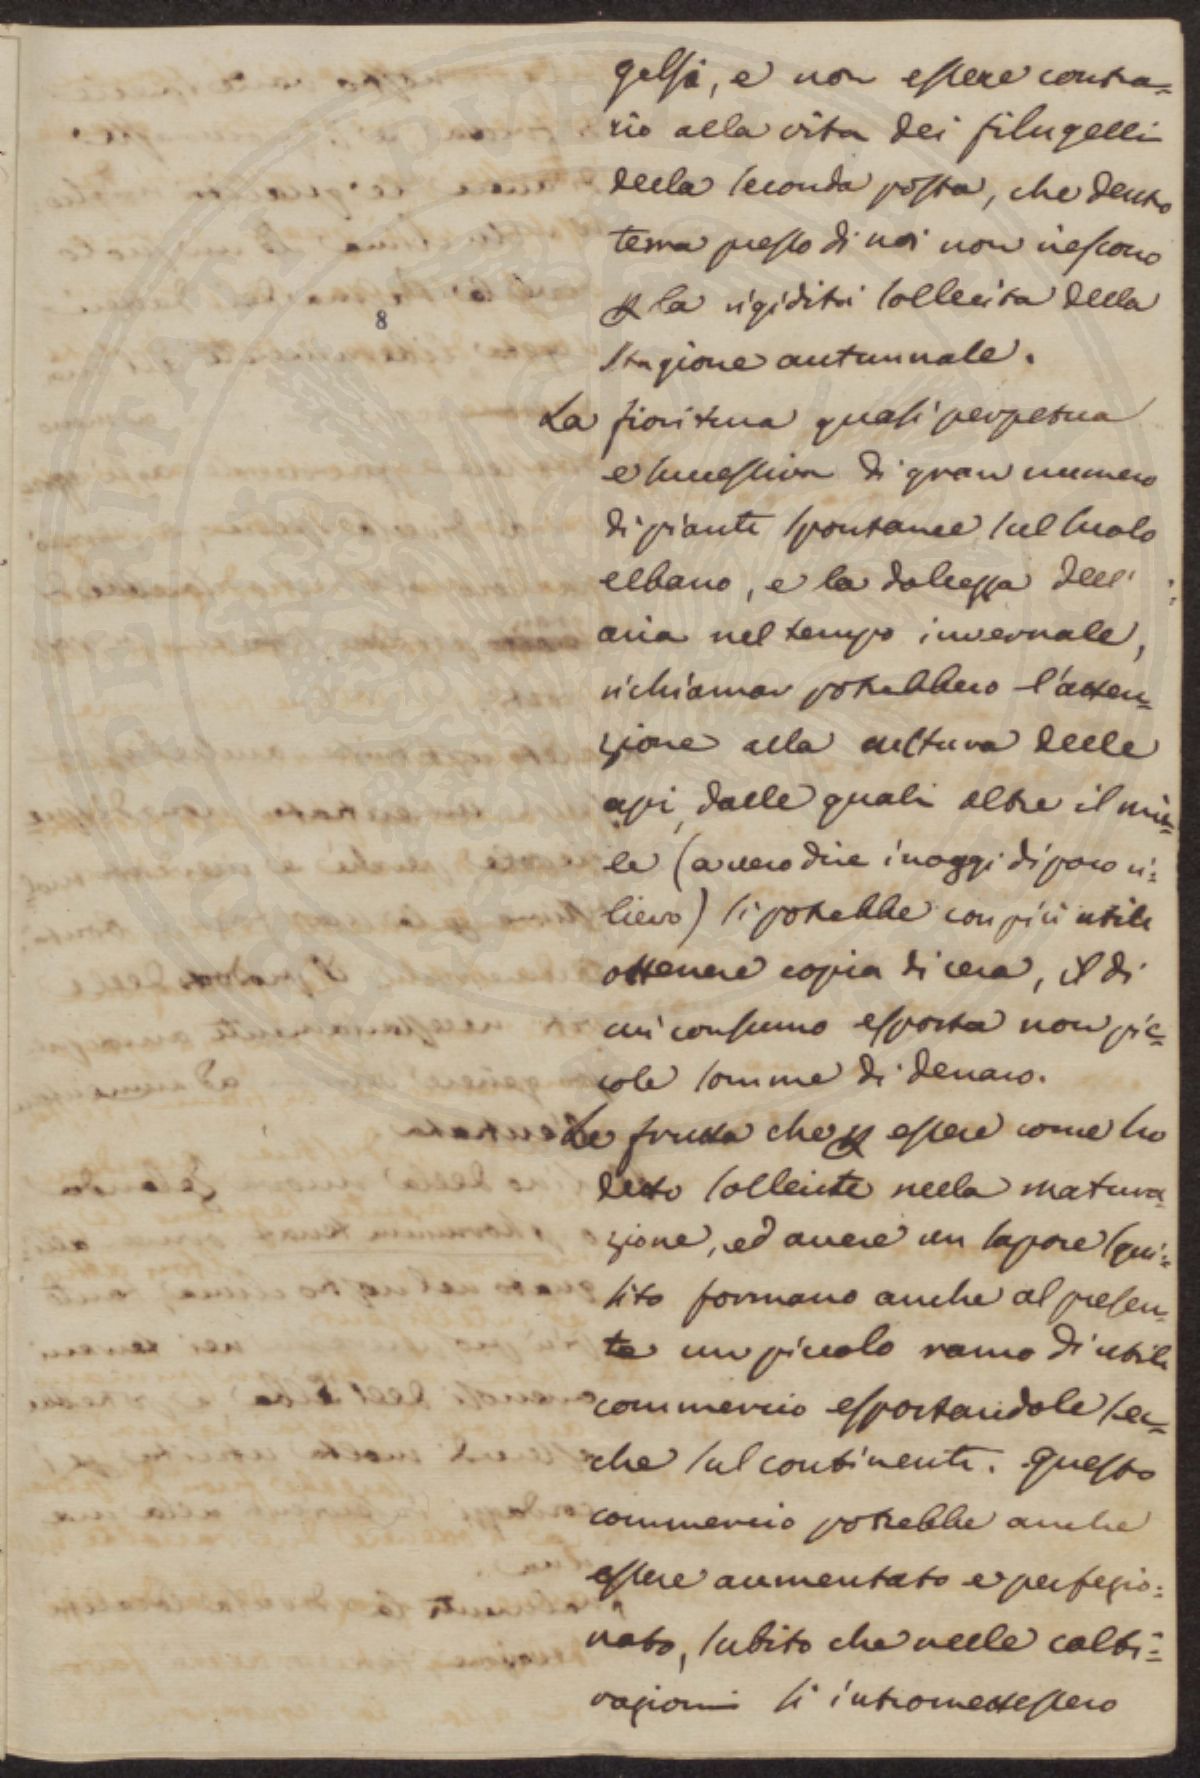 gelsi, e non essere contra=
rio alla vita dei filugelli
della seconda posta, che dentro
terra presso di noi non riescono
p la rigidità sollecita della
8
stagione autunnale.
La fioritura quasi perpetua
e successiva di gran numero
di piante spontanee sul suolo
elbano, e la dolcezza dell'
aria nel tempo invernale,
richiamar potrebbero l'atten=
zione alla cultura delle
api, dalle quali oltre il mie=
le (a vero dire in oggi di poco ri=
lievo) si potrebbe con più utile
ottenere copia di cera, il di
cui consumo esporta non pic=
cole somme di denaro.
Le frutta che p essere come ho
detto sollecite nella matura=
zione, ed avere un sapore squi=
sito formano anche al presen=
te un piccolo ramo di utile
commercio esportandole sec=
che sul continente. Questo
commercio potrebbe anche
essere aumentato e perfezio=
nato, subito che nelle colti=
vazioni si intromettessero